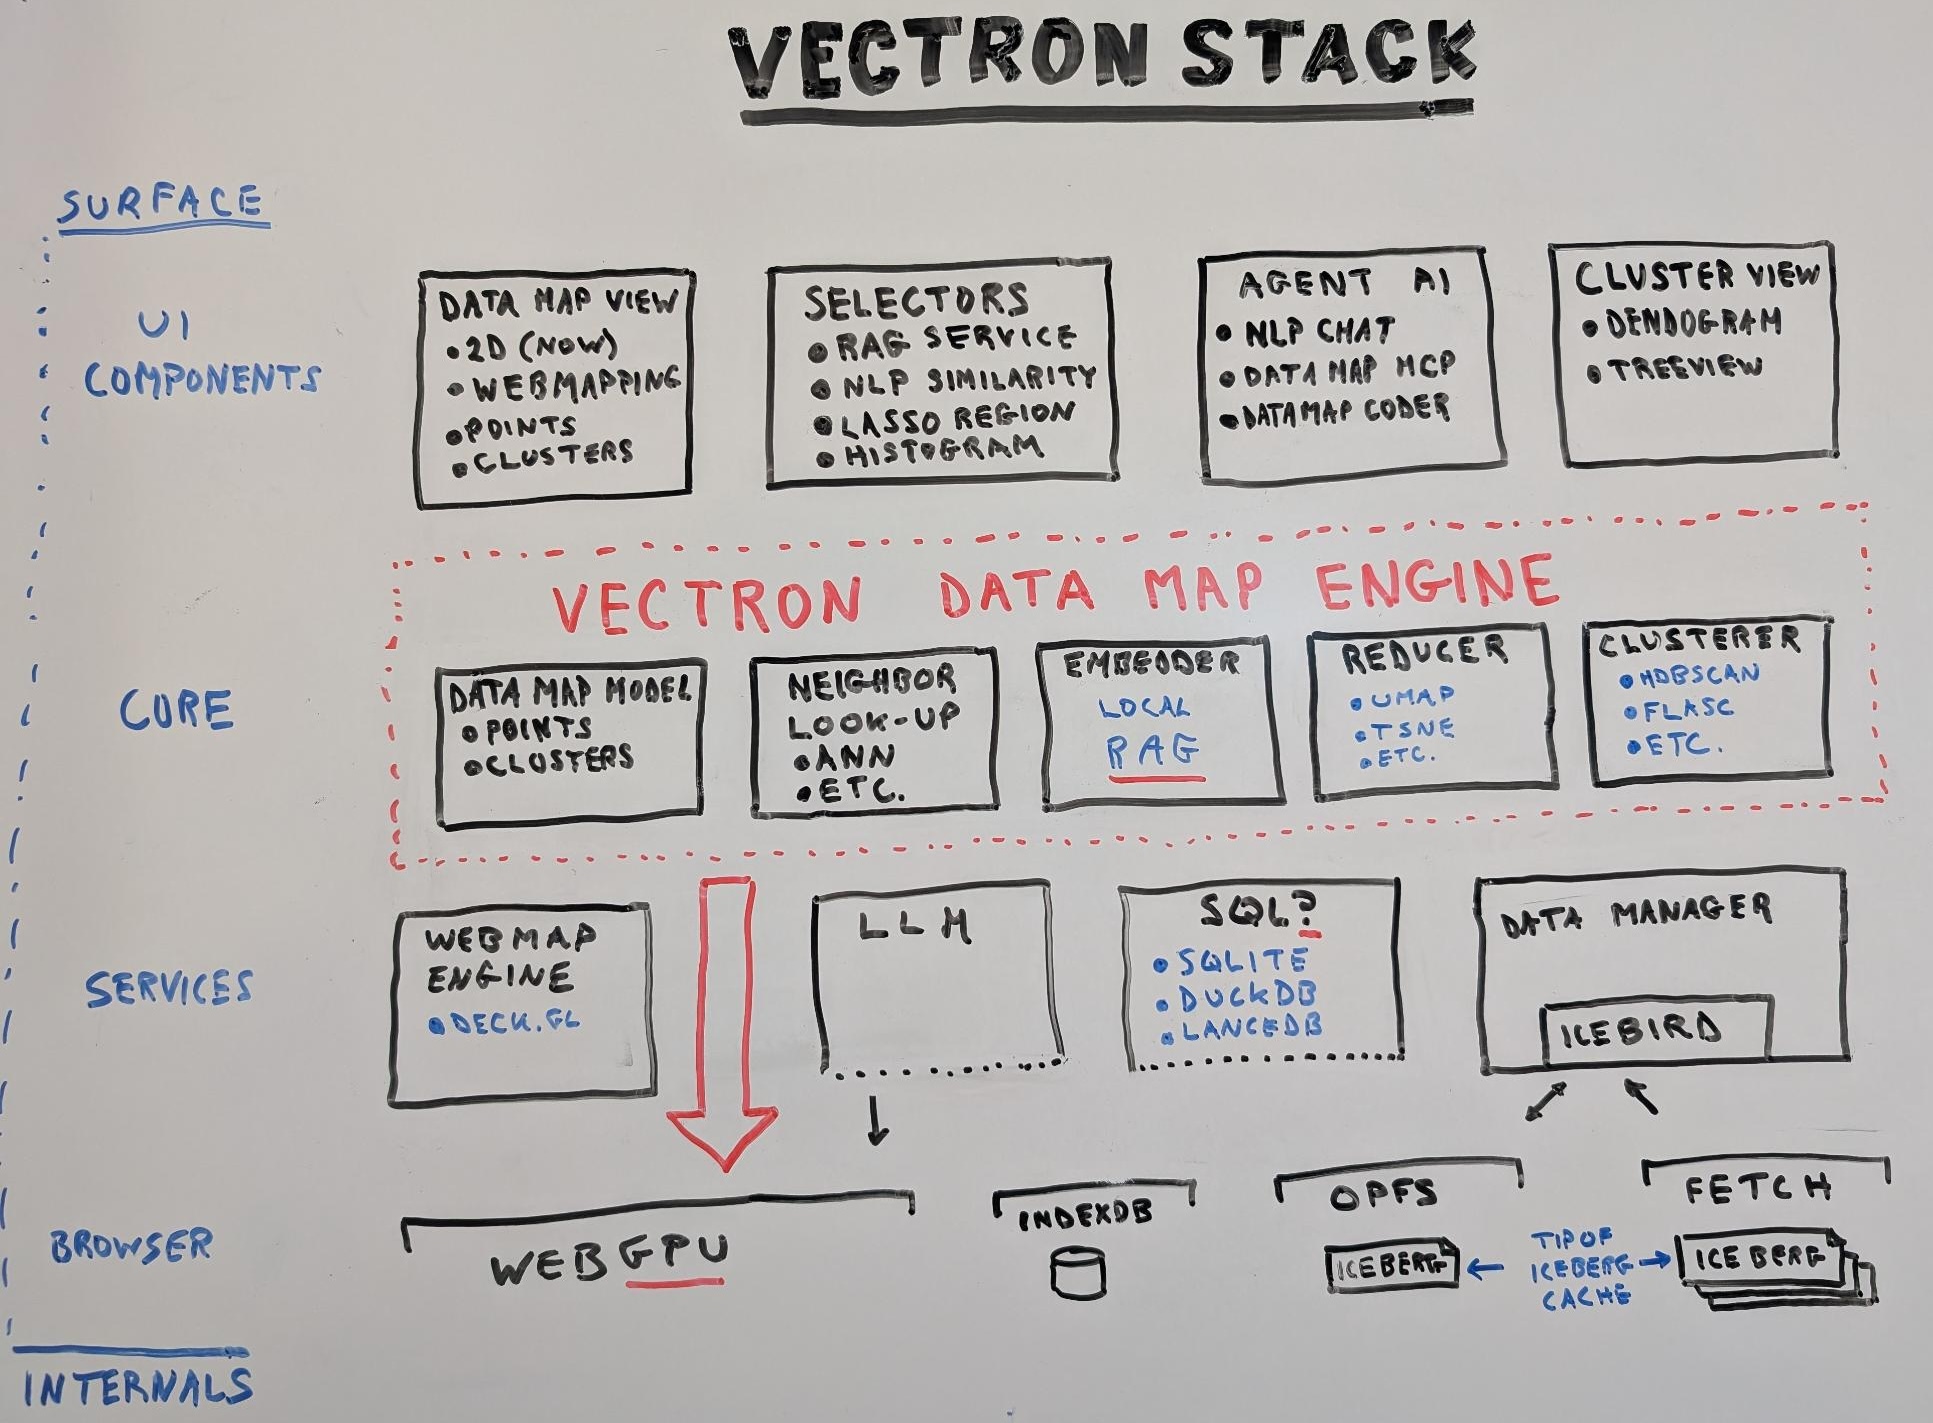 VECTRON STACK
SURFACE
UI
COMPONENTS
DATA MAP VIEW
• 2D (NOW)
• WEBMAPPING
• POINTS
• CLUSTERS
SELECTORS
• RAG SERVICE
• NLP SIMILARITY
• LASSO REGION
• HISTOGRAM
AGENT AI
• NLP CHAT
• DATA MAP MCP
• DATAMAP CODER
CLUSTER VIEW
• DENDOGRAM
• TREEVIEW
VECTRON DATA MAP ENGINE
CORE
DATA MAP MODEL
• POINTS
• CLUSTERS
NEIGHBOR
LOOK-UP
• ANN
• ETC.
EMBEDDER
LOCAL
RAG
REDUCER
• UMAP
• TSNE
• ETC.
CLUSTERER
• HDBSCAN
• FLASC
• ETC.
SERVICES
WEBMAP
ENGINE
• DECK.GL
LLM
SQL?
• SQLITE
• DUCKDB
• LANCEDB
DATA MANAGER
ICEBIRD
BROWSER
WEBGPU
INDEXDB
OPFS
ICEBERG
TIP OF
ICEBERG
CACHE
FETCH
ICEBERG
INTERNALS